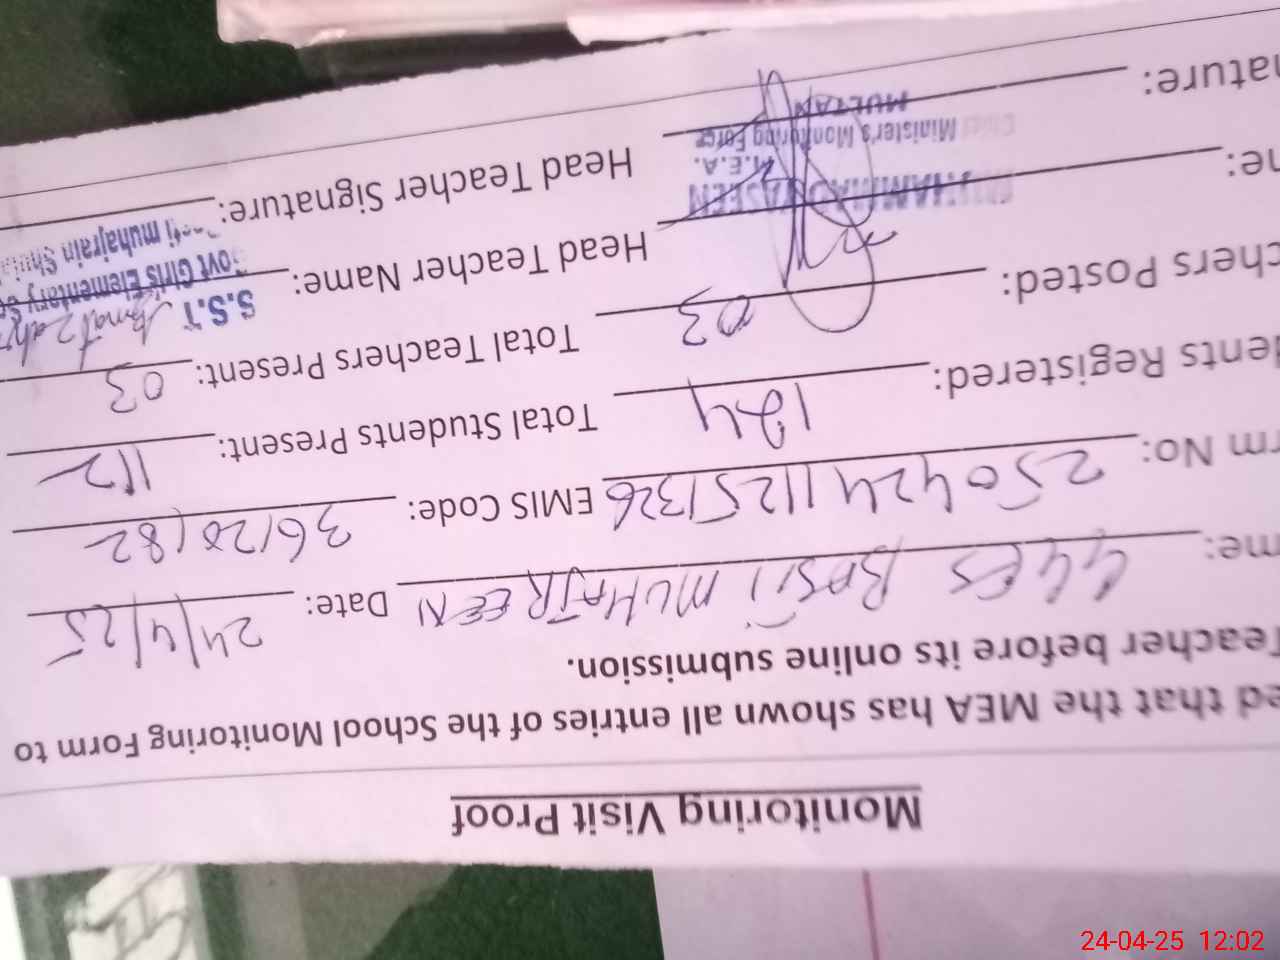 Monitoring Visit Proof
ed that the MEA has shown all entries of the School Monitoring Form to
Teacher before its online submission.
me: GGES BASTI MUHAJREEN Date: 24/4/25
rm No: 25042411251326 EMIS Code: 36120182
dents Registered: 124 Total Students Present: 112
chers Posted: 03 Total Teachers Present: 03
ne: Head Teacher Name:
nature: Head Teacher Signature:
YASEEN
M.E.A.
Minister's Monitoring Force
MULTAN
S.S.T
Govt Girls Elementary
muhajrain
24-04-25 12:02